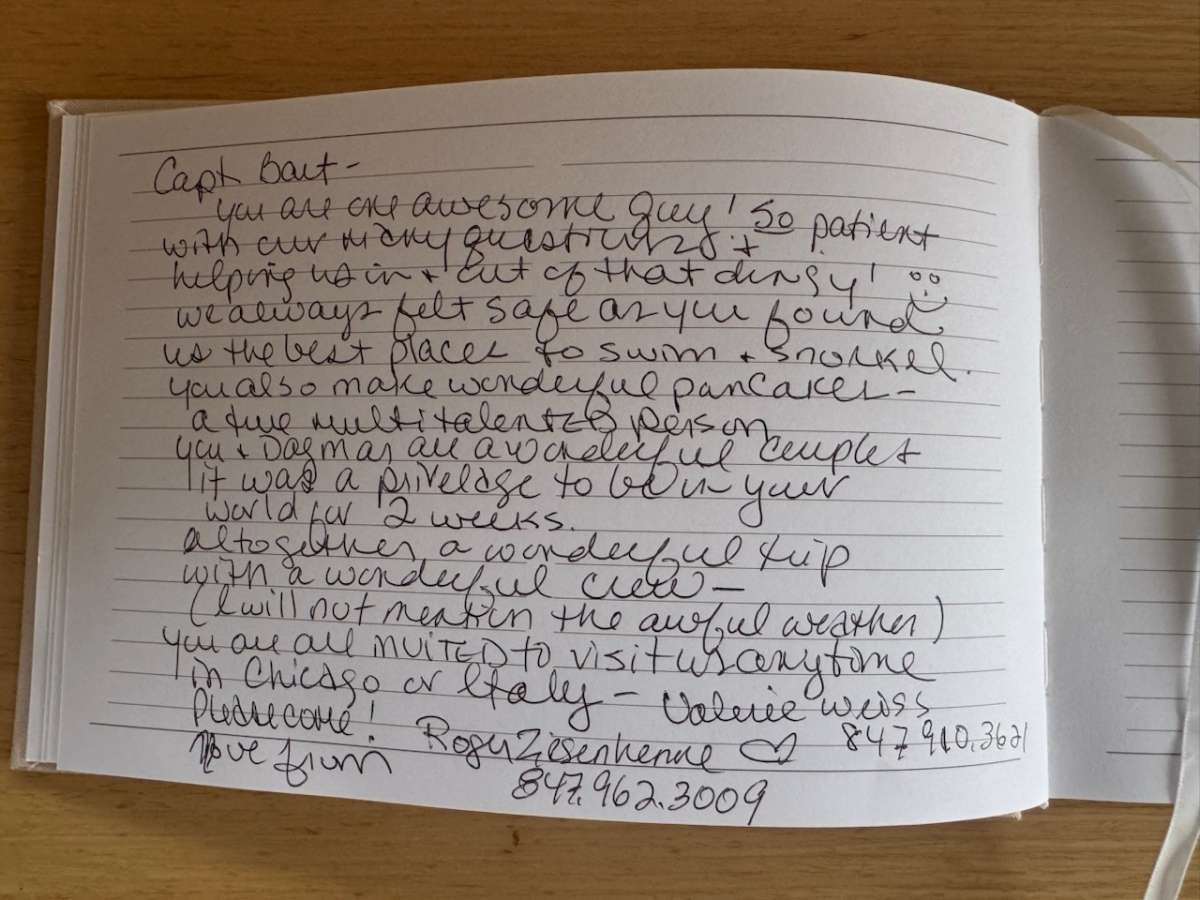 Capt. Bart -
you are one awesome guy! So patient
with our many questions +
helping us in + out of that dingy!
we always felt safe as you found
us the best places to swim + snorkel.
you also make wonderful pancakes -
a true multitalented person
you + Dagmar are a wonderful couple +
it was a privelage to be in your
world for 2 weeks.
altogether a wonderful trip
with a wonderful crew -
(I will not mention the awful weather)
you are all INVITED to visit us anytime
in Chicago or Italy - Valerie Weiss
Please come! 847 910.3621
love from Roger Ziesenhenne
847.962.3009